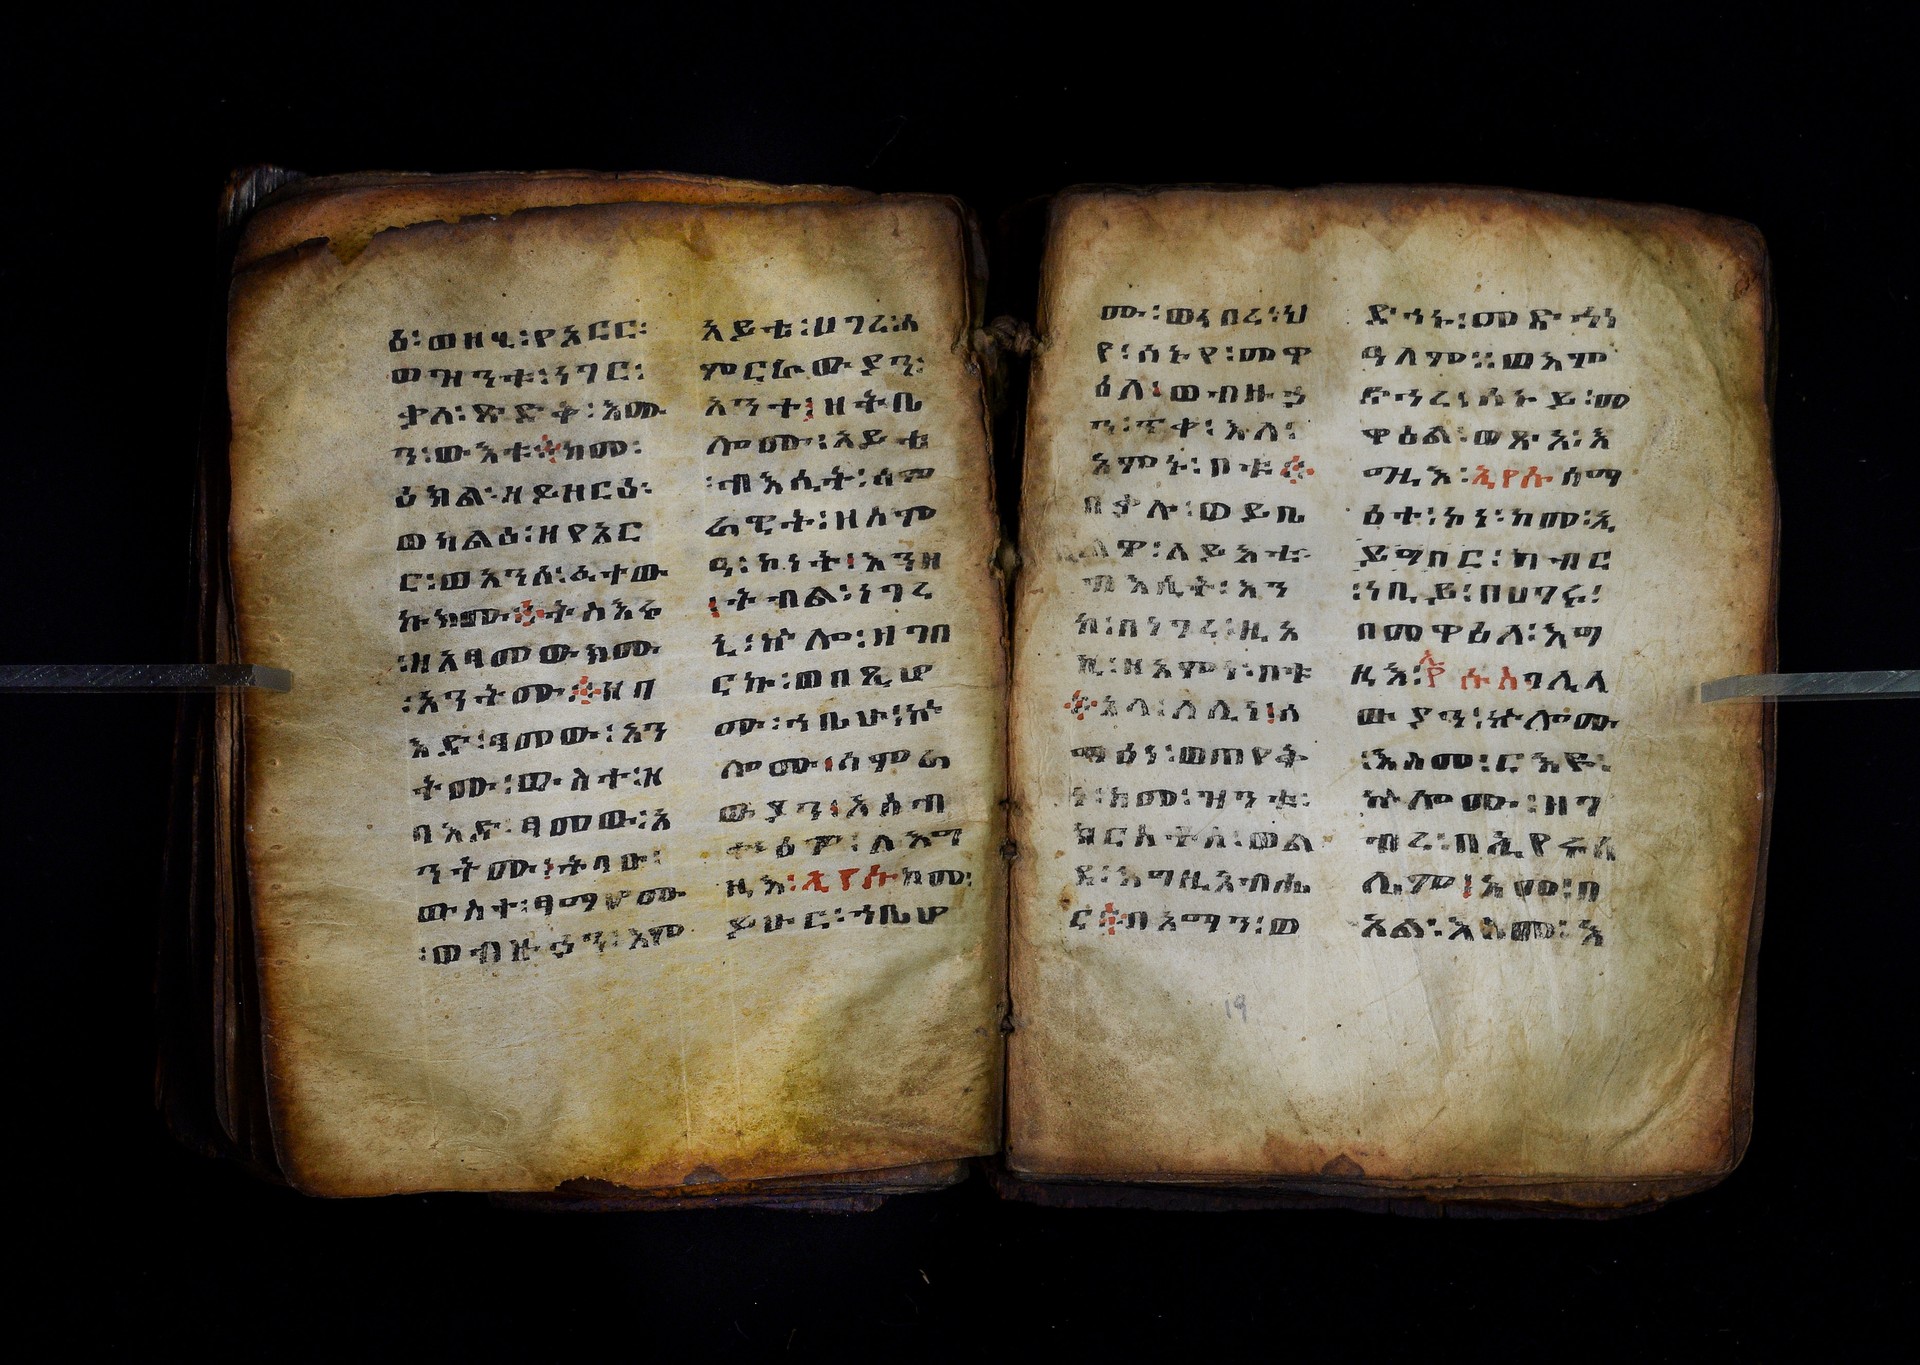 ዕ፡ወዘሂ፡የአርር፡
ወዝንቱ፡ነገር፡
ቃለ፡ጽድቅ፡እሙ
ን፡ውእቱ፨ከመ፡
ዕክል፡ዘይዘርዕ፡
ወካልዕ፡ዘየአር
ር፡ወአንሰ፡ፈተው
ኩ፡ከመ፨ትስእሩ
፡ዘኢፃመውክሙ
፡አንትሙ፨ዘባ
እድ፡ፃመው፡አን
ትሙ፡ውስተ፡ዝ
ባእድ፡ፃመው፡አ
ንትሙ፡ቦአክሙ፡
ውስተ፡ፃማሆሙ
፡ወብዙኃን፡እም
አይቴ፡ሀገረ፡ሰ
ምርራውያን፡
አንተ፡ዘትቤ
ሎሙ፡ለይቲ
፡ብእሲት፡ሰም
ራዊት፡ዘሰም
ዓ፡ኮነት፡እንዘ
፡ትብል፡ነገረ
ኒ፡ኵሎ፡ዘገበ
ርኩ፡ወበጺሆ
ሙ፡ኀቤሁ፡ኵ
ሎሙ፡ሰምራ
ውያን፡አስተብ
ቍዕዎ፡ለእግ
ዚእ፡ኢየሱ፡ከመ፡
ይሁር፡ኀቤሆ
ሙ፡ወነበረ፡ህ
የ፡ሰኑየ፡መዋ
ዕለ፡ወብዙኃ
ን፡ጥቀ፡እለ፡
አምኑ፡ቦቱ፨
በቃሉ፡ወይቤ
ልዋ፡ለይእቲ፡
ብእሲት፡አን
ከ፡በነገረ፡ዚአ
ኪ፡ዘአምነ፡ቦቱ
፨አላ፡ለሊነ፡ሰ
ማዕነ፡ወጠየቅ
ነ፡ከመ፡ዝንቱ፡
ክርስቶስ፡ወል
ደ፡እግዚአብሔ
ር፨በአማን፡ወ
ድኀኑ፡መድኀነ
ዓለም፡፡ወእም
ድኅረ፡ሰኑይ፡መ
ዋዕል፡ወጽአ፡እ
ግዚእ፡ኢየሱ፡ሰማ
ዕተ፡ኮነ፡ከመ፡ኢ
ይግበር፡ክብር
፡ነቢይ፡በሀገሩ፡
በመዋዕለ፡እግ
ዚእ፡ኢየሱስገሊላ
ውያን፡ኵሎሙ
፡እስመ፡ርእዩ፡
ኵሎሙ፡ዘገ
ብረ፡በኢየሩሳ
ሌም፡እመ፡በ
አል፡እስመ፡እ
19